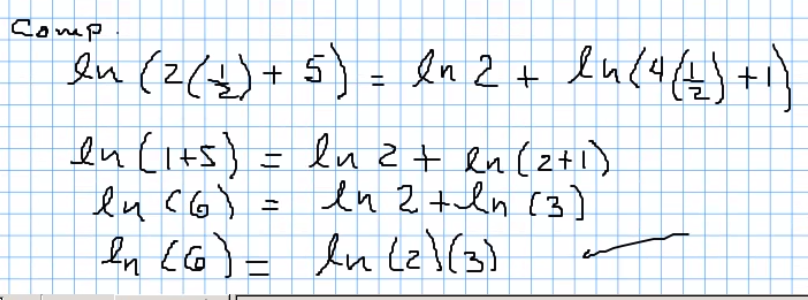 Comp.
ln (2(1/2) + 5) = ln 2 + ln(4(1/2) + 1)
ln (1+5) = ln 2 + ln (2+1)
ln (6) = ln 2 + ln (3)
ln (6) = ln (2)(3) ✓